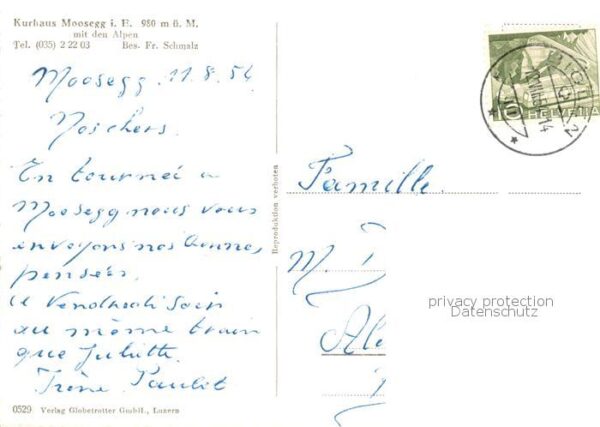 Kurhaus Moosegg i. E. 980 m ü. M.
mit den Alpen
Tel. (035) 2 22 03 Bes. Fr. Schmalz
Moosegg 11.8.54
En tourneé a
Moosegg nous vous
envoyons nos bonnes
pensées.
a Vendredi soir
au même train
que Juliette
Irène Paulet
0529 Verlag Globetrotter GmbH., Luzern
Reproduktion verboten
HELVETIA
10
Famille
M.
privacy protection
Datenschutz